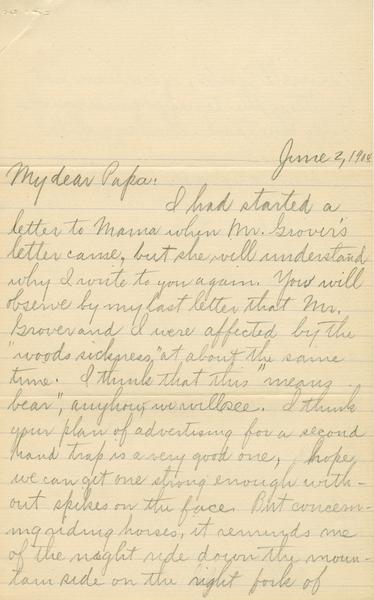 June 2, 1908
My dear Papa:
I had started a
letter to Mama when Mr. Grover's
letter came, but she will understand
why I write to you again. You will
observe by my last letter that Mr.
Grover and I were affected by the
"woods sickness," at about the same
time. I think that this "means
bear", anyhow, we will see. I think
your plan of advertising for a second
hand trap is a very good one, I hope
we can get one strong enough with-
out spikes on the face. But concern-
ing riding horses, it reminds me
of the night ride down the moun-
tain side on the right fork of